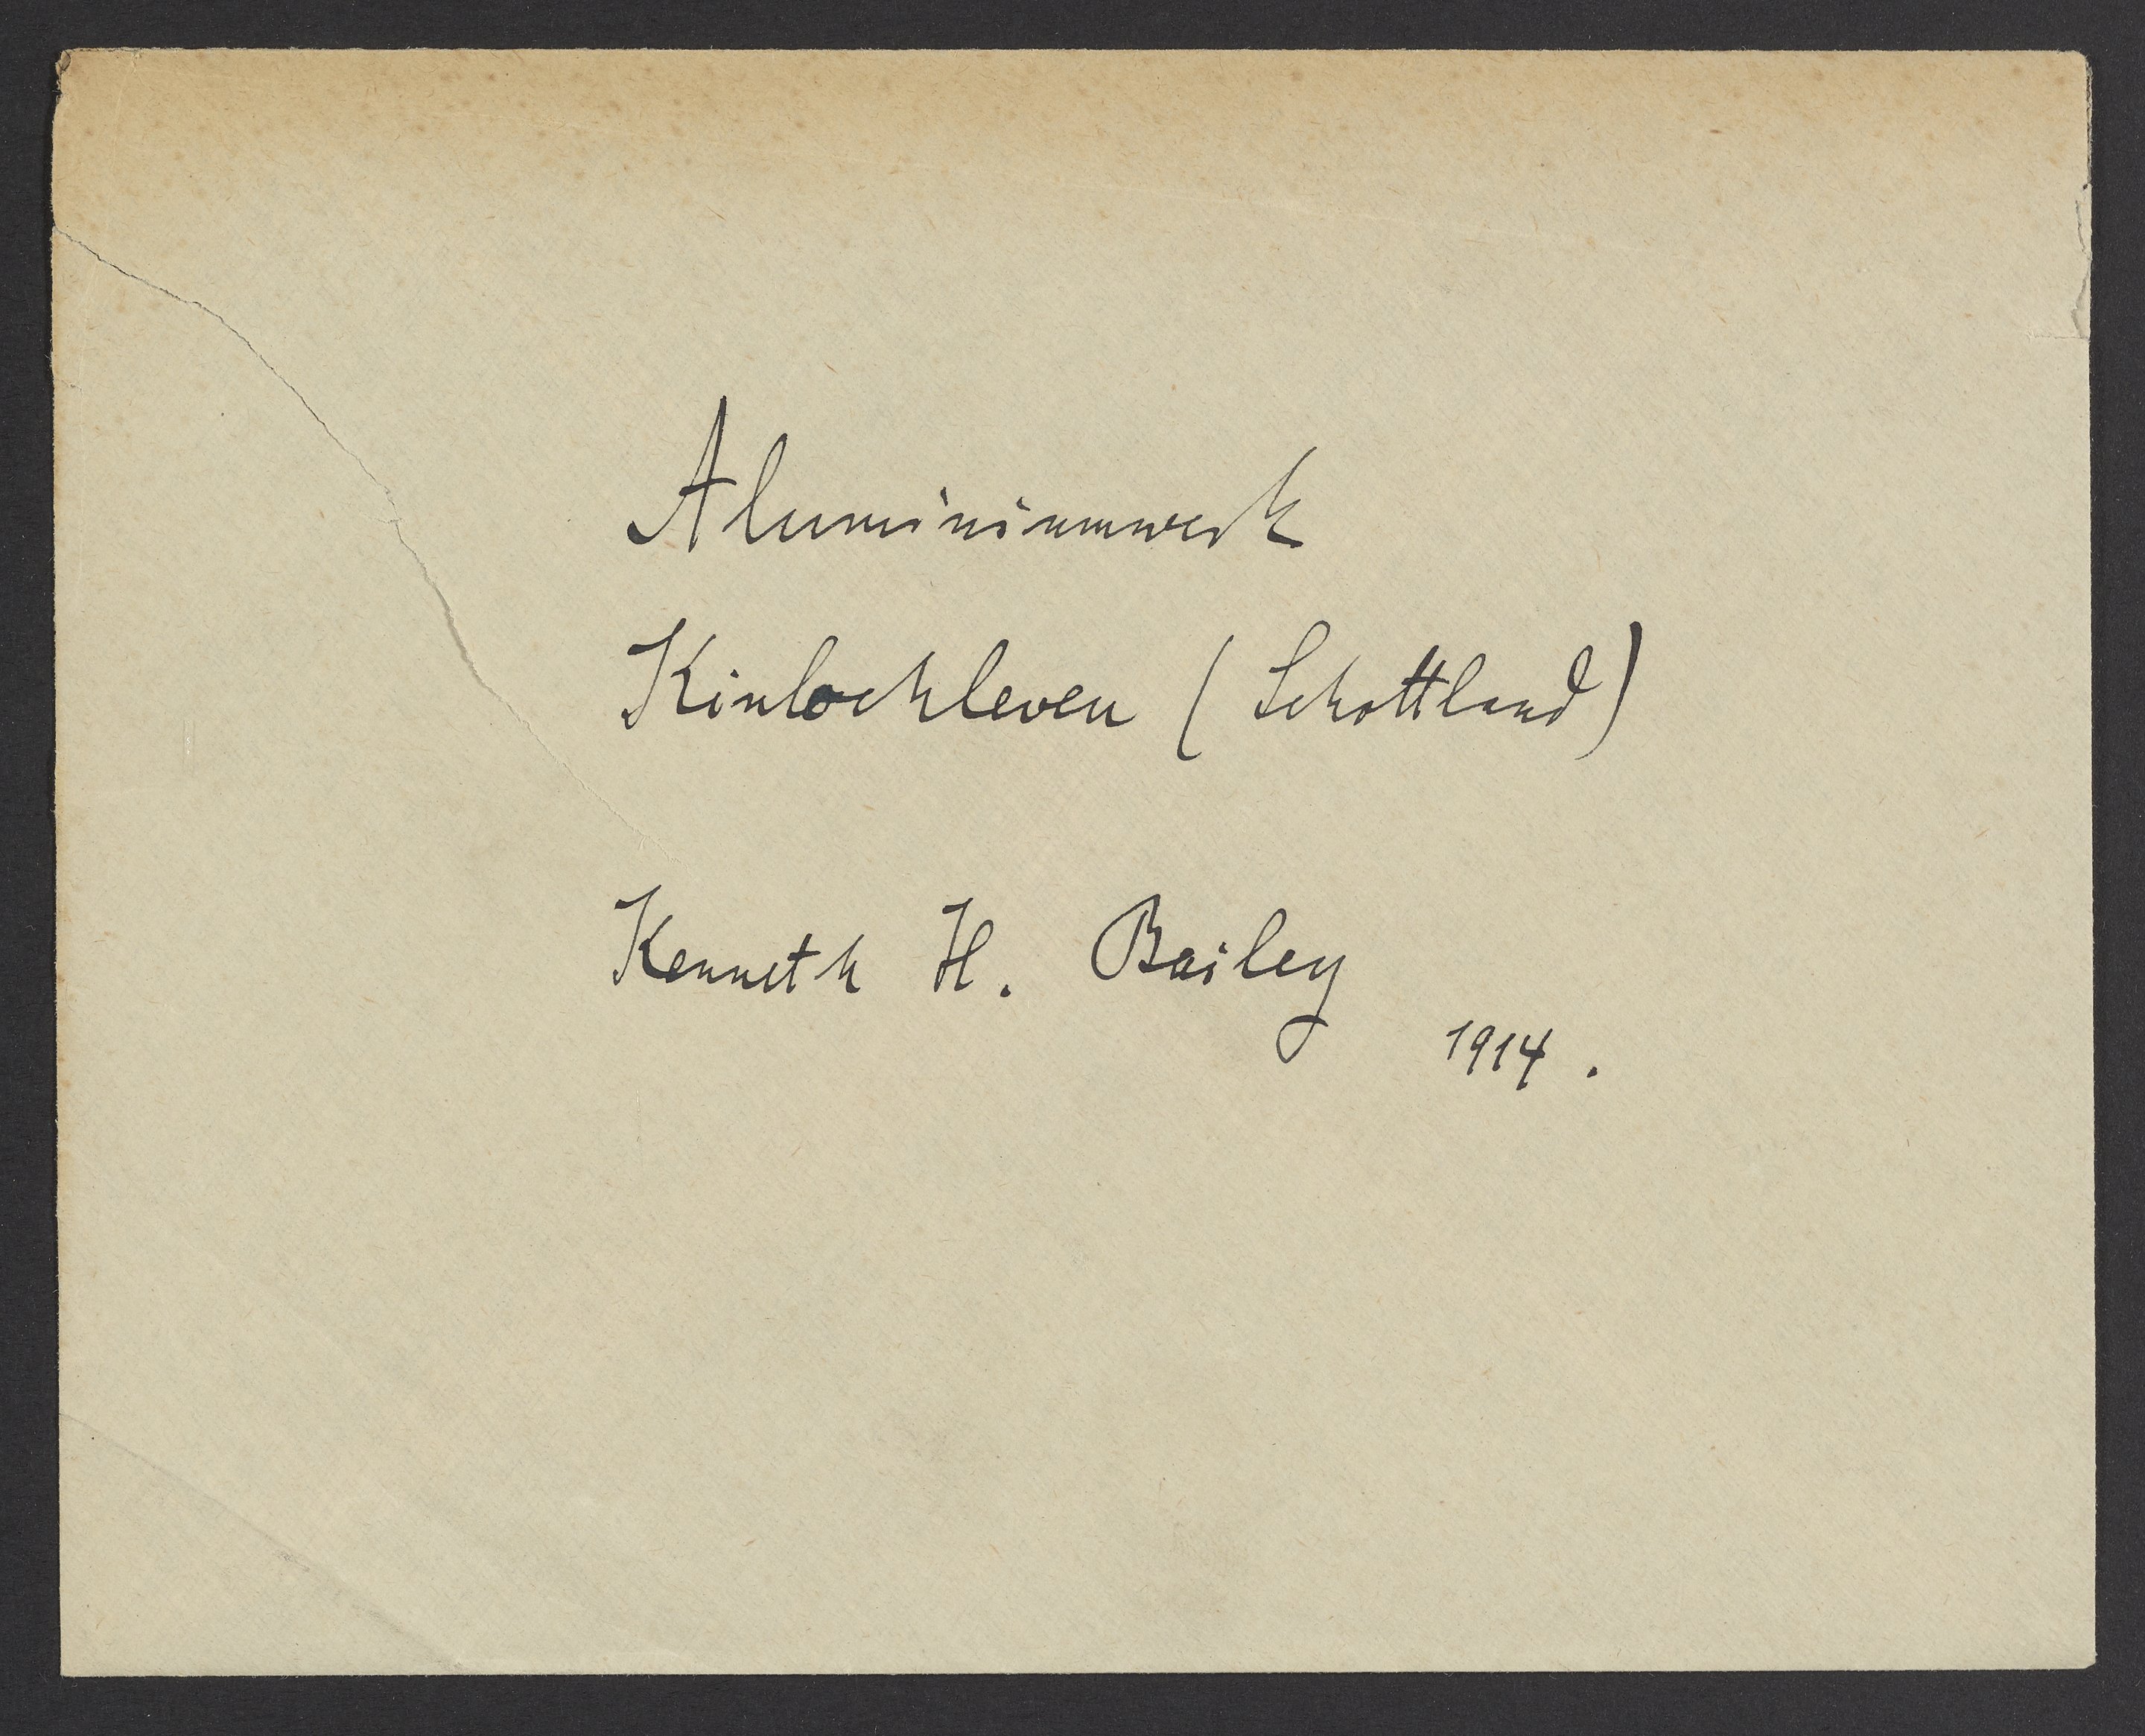 Aluminiumwerk
Kinlochleven (Schottland)
Kenneth H. Bailey
1914.